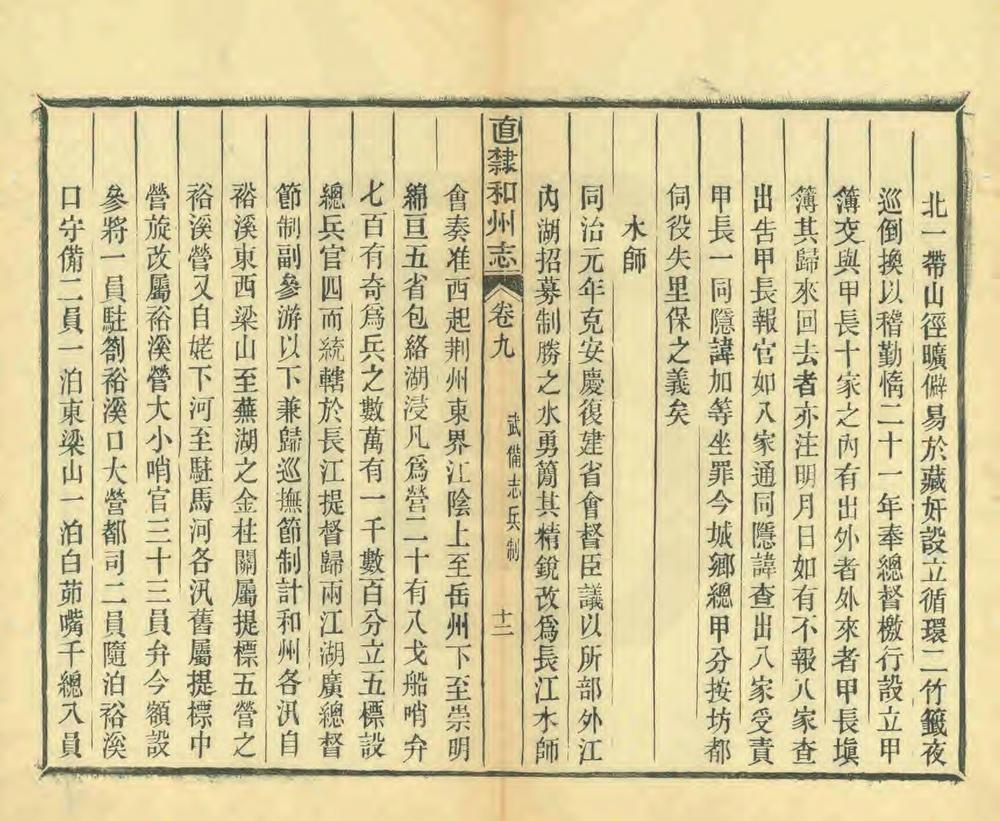 北一帶山徑曠僻易於藏奸設立循環二竹籤夜
巡倒換以稽勤惰二十一年奉總督檄行設立甲
簿交與甲長十家之內有出外者外來者甲長塡
簿其歸來回去者亦注明月日如有不報八家查
出吿甲長報官如八家通同隱諱查出八家受責
甲長一同隱諱加等坐罪今城鄉總甲分按坊都
伺役失里保之義矣
水師
同治元年克安慶復建省會督臣議以所部外江
內湖招募制勝之水勇簡其精銳改爲長江水師
直隸和州志
卷九
武備志兵制
十二
會奏准西起荆州東界江陰上至岳州下至崇明
綿亘五省包絡湖浸凡爲營二十有八戈船哨弁
七百有奇爲兵之數萬有一千數百分立五標設
總兵官四而統轄於長江提督歸兩江湖廣總督
節制副參游以下兼歸巡撫節制計和州各汛自
裕溪東西梁山至蕪湖之金柱關屬提標五營之
裕溪營又自姥下河至駐馬河各汛舊屬提標中
營旋改屬裕溪營大小哨官三十三員弁今額設
參將一員駐劄裕溪口大營都司二員隨泊裕溪
口守備二員一泊東梁山一泊白茆嘴千總八員